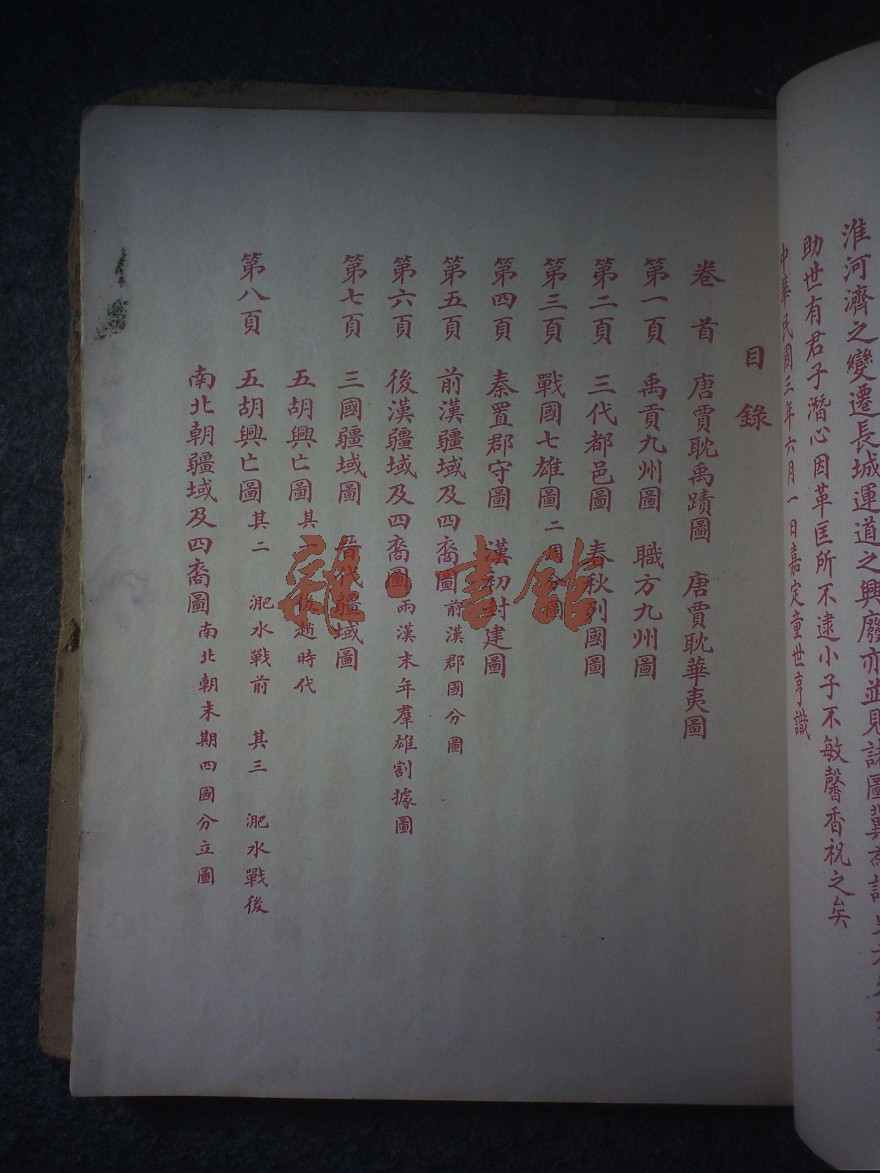 淮河濟之變遷長城運道之興廢亦並見諸圖冀為讀史
助世有君子潛心因革匡所不逮小子不敏馨香祝之矣
中華民國三年六月一日嘉定童世亨識
目錄
卷首 唐賈耽禹蹟圖 唐賈耽華夷圖
第一頁 禹貢九州圖 職方九州圖
第二頁 三代都邑圖 春秋列國圖
第三頁 戰國七雄圖 二周
第四頁 秦置郡守圖 漢初封建圖
第五頁 前漢疆域及四裔圖 前漢郡國分圖
第六頁 後漢疆域及四裔圖 兩漢末年羣雄割據圖
第七頁 三國疆域圖 晉代疆域圖
五胡興亡圖 其一 後趙時代
第八頁 五胡興亡圖 其二 淝水戰前 其三 淝水戰後
南北朝疆域及四裔圖 南北朝末期四國分立圖
雜·書館